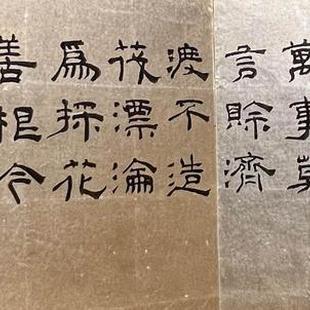 萬事
言賒濟
渡不造
筏漂淪
爲採花
善根今